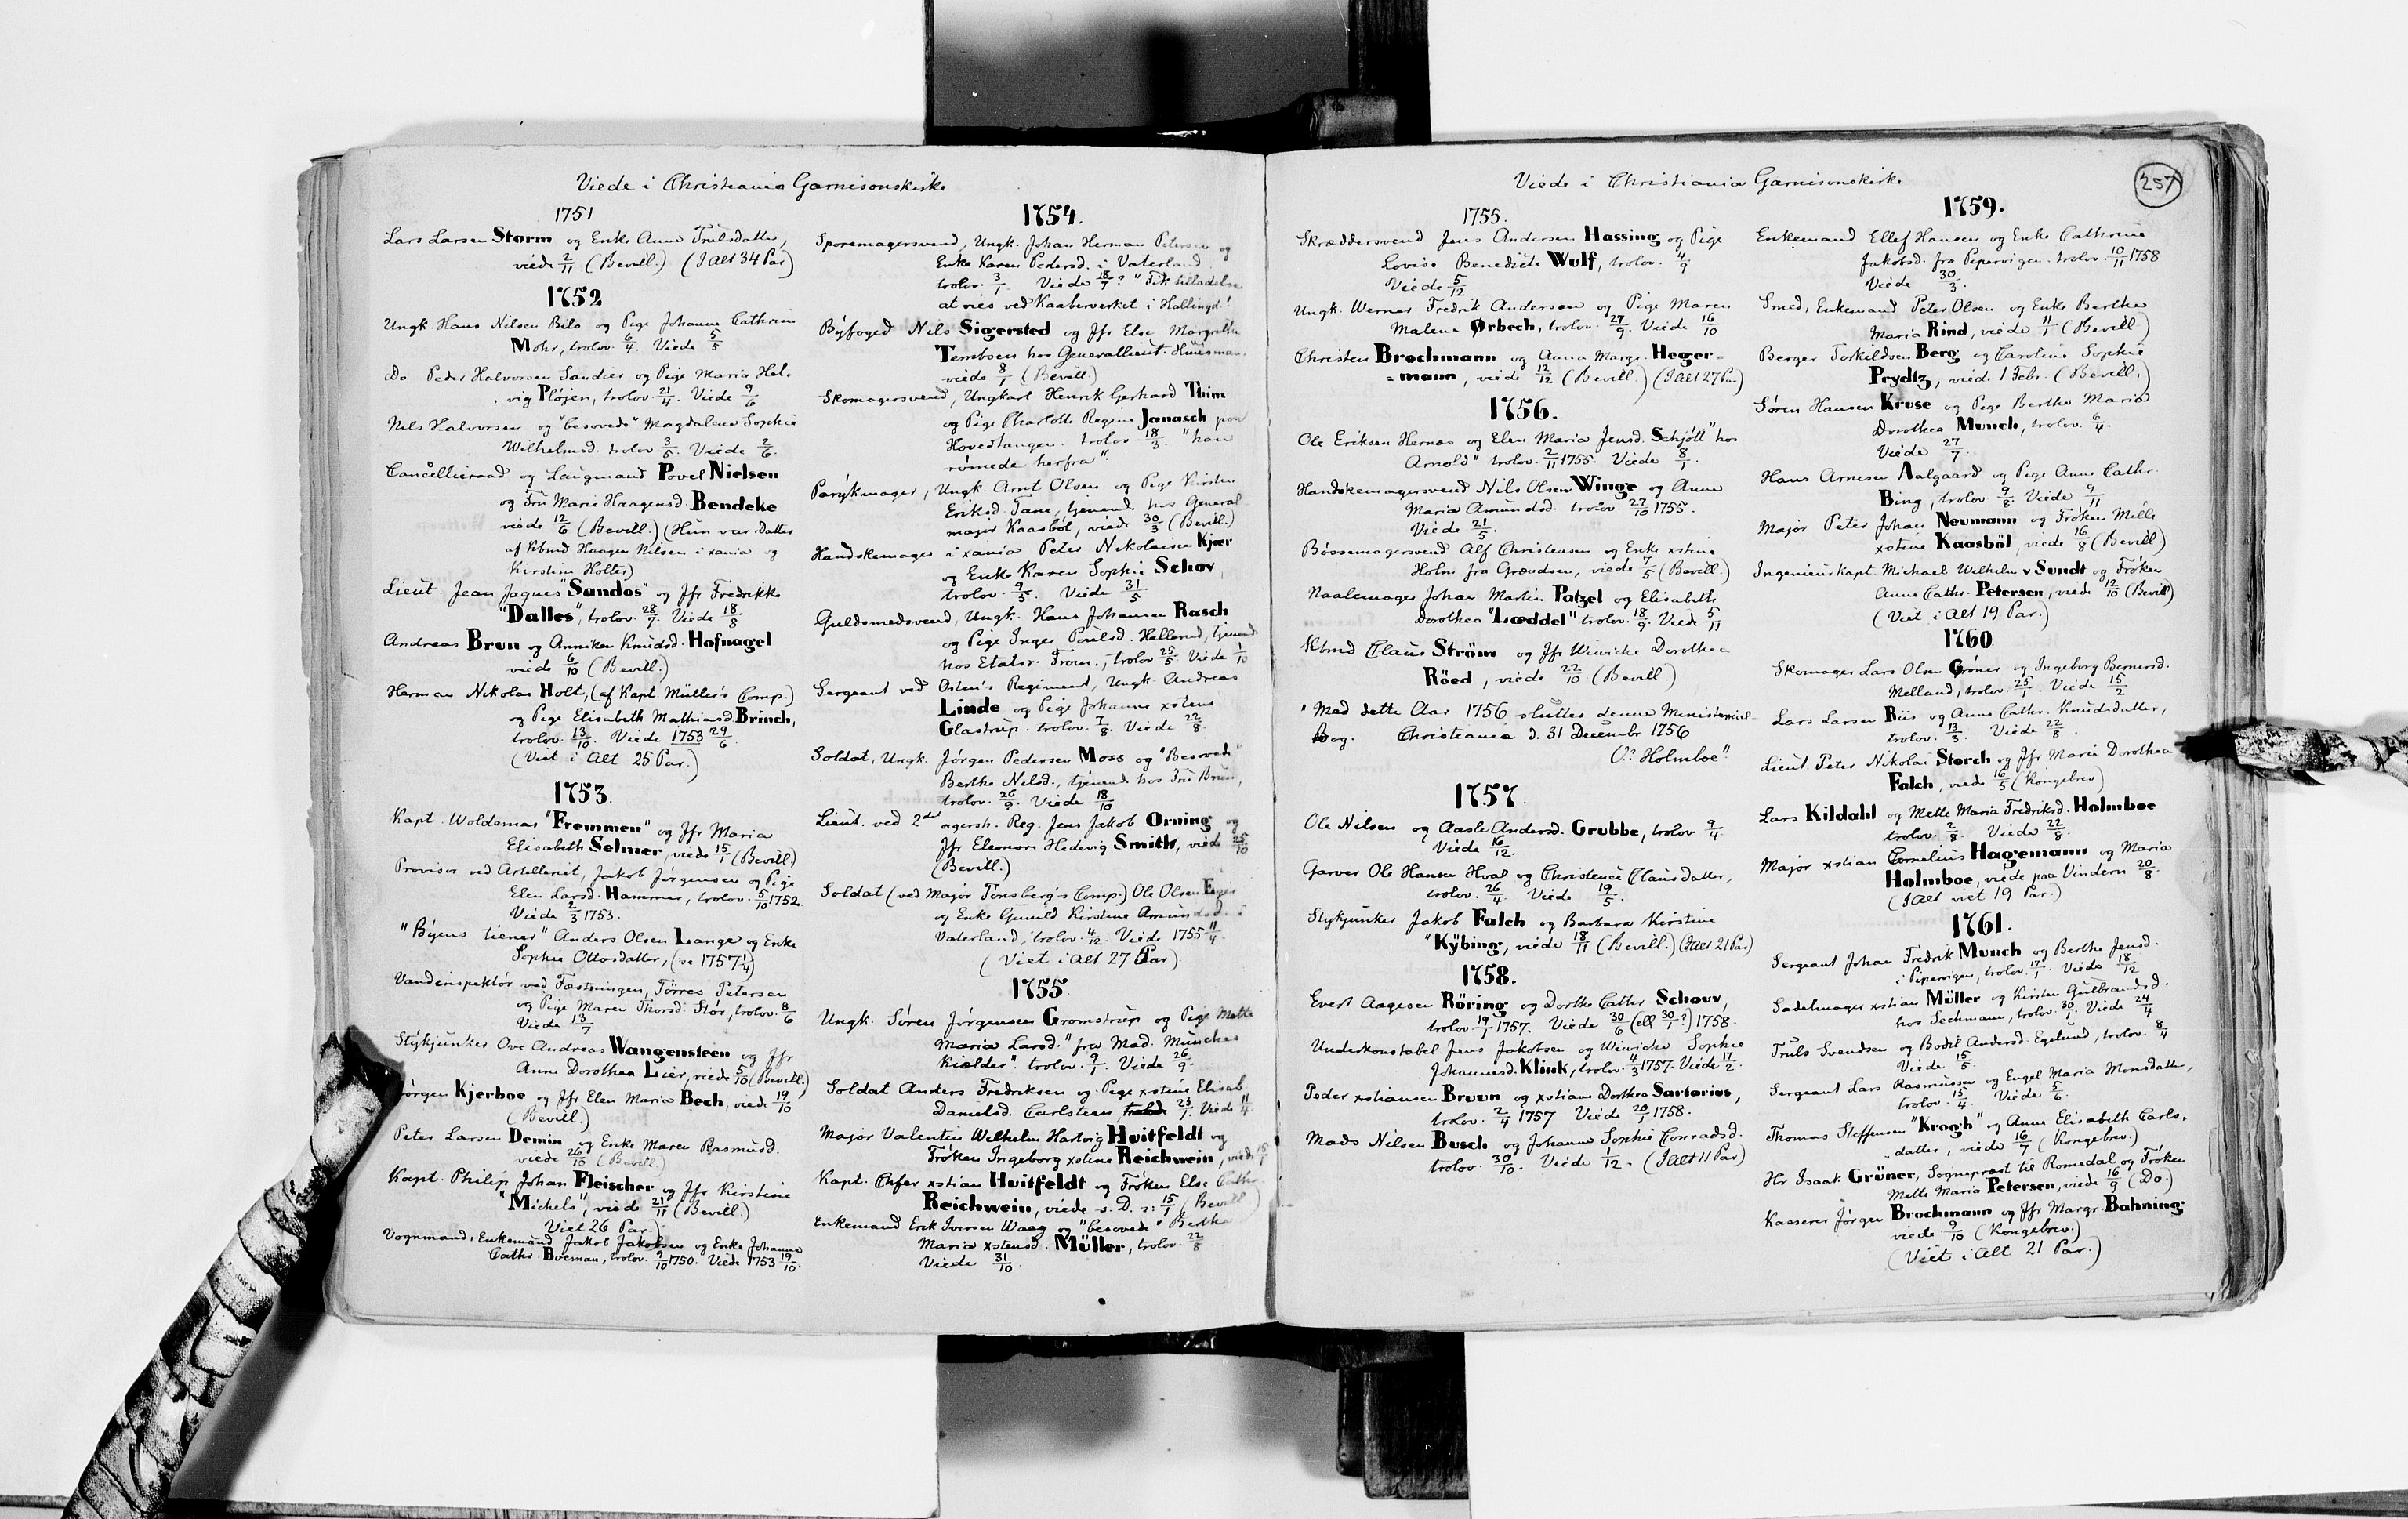 Viede i Christiania Garnisonskirke
1751
Lars Larsen Storm og Enke Anne Trulsdatter,
viede 2/11 (Bevill.) (I alt 34 Par)
1752
Ungk. Hans Nilsen Bilo og Pige Johanne Cathrine
Mohr, trolov. 6/4. Viede 5/5
Do Peder Halvorsen Sandier og Pige Maria Hel-
vig Pløjen, trolov. 21/4. Viede 9/6
Nils Halvorsen og "besovede" Magdalena Sophie
Wilhelmsd. trolov. 3/5. Viede 2/6.
Cancellieraad og Laugmand Povel Nielsen
og Fru Marie Haagensd. Bendeke
viede 12/6 (Bevill.) (Hun var Datter
af Kbmd Haagen Nilsen i xania og
Kirstine Holter)
Lieut. Jean Jaques "Sandos" og Jfr Fredrikke
"Dalles", trolov. 28/7. Viede 18/8
Andreas Brun og Anniken Knudsd. Hofnagel
viede 6/10 (Bevill.)
Herman Nikolai Holt, (af Kapt. Müller's Comp.)
og Pige Elisabeth Mathiasd. Brinch,
trolov. 13/10. Viede 1753 29/6.
(Viet i Alt 25 Par.)
1753.
Kapt. Woldemar "Fremmen" og Jfr Maria
Elisabeth Selmer, viede 15/1 (Bevill.)
Provisor ved Artilleriet, Jakob Jørgensen og Pige
Elen Larsd. Hammer, trolov. 5/10 1752.
Viede 2/3 1753.
"Byens tiener" Anders Olsen Lange og Enke
Sophie Ottosdatter, (se 1757 1/4)
Vandinspektør ved Fæstningen, Tørres Petersen
og Pige Maren Thorsd. Stör, trolov. 8/6
Viede 13/7
Stykjunker Ove Andreas Wangensteen og Jfr
Anne Dorothea Leier, viede 5/10 (Bevill.)
Jörgen Kjerboe og Jfr Elen Maria Bech, viede 19/10
(Bevill.)
Peter Larsen Demin og Enke Maren Rasmusd.
viede 26/10 (Bevill.)
Kapt. Philip Johan Fleischer og Jfr Kirstine
"Michels", viede 21/11 (Bevill.)
Viet 26 Par.)
Vognmand, Enkemand Jakob Jakobsen og Enke Johanne
Cathr. Boeman, trolov. 9/10 1750. Viede 1753 19/10.
1754.
Sporemagersvend, Ungk. Johan Herman Petersen og
Enke Karen Pedersd. i Vaterland
trolov. 3/1. Viede 18/7? "Fik tilladelse
at vies ved Kaaberverket i Hallingd."
Byfoged Nils Sigersted og Jfr Else Margrethe
Tembsen hos Generallieut. Huusman,
viede 8/1 (Bevill.)
Skomagersvend, Ungkarl Henrik Gerhard Thim
og Pige Charlotte Regine Janasch paa
Hovedtangen. trolov. 18/3. "han
römede herfra".
Parykmager, Ungk. Arnt Olsen og Pige Kirsten
Eriksd. Tane, tjenende hos General-
major Kaasböl, viede 30/3 (Bevill.)
Handskemager i xania Peter Nikolaisen Kjær
og Enke Karen Sophie Schov,
trolov. 9/5. Viede 31/5
Guldsmedsvend, Ungk. Hans Johansen Rasch
og Pige Inger Poulsd. Hellerud, tjenende
hos Etatsr. From., trolov. 25/5 Viede 1/10
Sergeant ved Osten's Regiment, Ungk. Andreas
Linde og Pige Johanne xstens
Glastrup. trolov. 7/8. Viede 22/8.
Soldat, Ungk. Jørgen Pedersen Moss og "Besovede"
Berthe Nilsd., tjenende hos Fru Brun,
trolov. 26/9. Viede 18/10
Lieut. ved 2det agersh. Reg. Jens Jakob Orning og
Jfr Eleonora Hedevig Smith, viede 25/10
(Bevill.)
Soldat (ved Major Tønsberg's Comp.) Ole Olsen Eger
og Enke Gunild Kirstine Amundsd. i
Vaterland, trolov. 4/12. Viede 1755 11/4.
(Viet i Alt 27 Par)
1755.
Ungk. Søren Jørgensen Gromstrup og Pige Mette
Maria Larsd. "fra Mad. Munches
Kielder". trolov. 9/1. Viede 26/9.
Soldat Anders Fredriksen og Pige xstine Elisab.
Danielsd. Carlsteen, 23/1. Viede 11/4
Major Valentin Wilhelm Hartvig Hvitfeldt og
Frøken Ingeborg xstine Reichwein, viede 15/1
Kapt. Chfer xstian Hvitfeldt og Frøken Else Cathr.
Reichwein, viede s. D. ɔ: 15/1 (Bevill)
Enkemand Erik Iversen Waag og "besovede" Berthe
Maria xstensd. Müller, trolov. 22/8
Viede 31/10.
Viede i Christiania Garnisonskirke
257
1755.
Skræddersvend Jens Andersen Hassing og Pige
Lovise Benedicte Wulf, trolov. 4/9
Viede 5/12
Ungk. Werner Fredrik Andersen og Pige Maren
Malene Ørbech, trolov. 27/9. Viede 16/10
Christen Brochmann og Anna Margr. Heger-
=mann, viede 12/12 (Bevill.) (I Alt 27 Par)
1756.
Ole Eriksen Hernæs og Elen Maria Jensd. Schjött "hos
Arnold" trolov. 2/11 1755. Viede 8/1.
Handskemagersvend Nils Olsen Winge og Anne
Maria Amundsd. trolov. 27/10 1755.
Viede 21/5.
Bøssemagersvend Alf Christensen og Enke xstine
Holm fra Grændsen, viede 7/5 (Bevill.)
Naalemager Johan Martin Patzel og Elisabeth
Dorothea "Læddel" trolov. 18/9. Viede 5/11
Kbmd Claus Ström og Jfr Wiwicke Dorothea
Röed, viede 22/10 (Bevill.)
"Med dette Aar 1756 sluttes denne Ministerial-
Bog. Christiania d. 31 Decembr 1756
Holmboe"
1757.
Ole Nilsen og Aasle Andersd. Grubbe, trolov 9/4
Viede 16/12.
Garver Ole Hansen Hval og Christence Clausdatter,
trolov. 26/4. Viede 19/5.
Stykjunker Jakob Falch og Barbara Kirstine
"Kybing, viede 18/11 (Bevill.) (I Alt 21 Par)
1758.
Evert Aagesen Röring og Dorthe Cathr Schouv,
trolov. 19/1 1757. Viede 30/6 (ell 30/1?) 1758.
Underkonstabel Jens Jakobsen og Wiwicke Sophie
Johannesd. Klink, trolov. 4/3 1757. Viede 17/2.
Peder xstiansen Bruun og xstiane Dorthea Sartorius,
trolov. 2/4 1757 Viede 20/1 1758.
Mads Nilsen Busch og Johanne Sophie Conradsd.
trolov. 30/10. Viede 1/12. (I Alt 11 Par)
1759.
Enkemand Ellef Hansen og Enke Cathrine
Jakobsd. fra Pipervigen. trolov. 10/11 1758
Viede 30/3.
Smed, Enkemand Peter Olsen og Enke Berthe
Maria Rind, viede 11/1 (Bevill)
Berger Torkildsen Berg og Caroline Sophie
Prydtz, viede 1 Febr. (Bevill.)
Søren Hansen Kruse og Pige Berthe Maria
Dorothea Munch, trolov. 6/4.
Viede 27/7
Hans Arnesen Aalgaard og Pige Anne Cathr.
Bing, trolov. 9/8. Viede 9/11
Major Peter Johan Neumann og Frøken Mille
xstine Kaasböl, viede 16/8 (Bevill.)
Ingenieurkapt. Michael Wilhelm v Sundt og Frøken
Anne Cathr. Petersen, viede 12/10 (Bevill)
(Viet i Alt 19 Par.)
1760
Skomager Lars Olsen Grøner og Ingeborg Bernersd.
Melland, trolov. 25/1. Viede 15/2
Lars Larsen Riis og Anne Cathr. Knudsdatter,
trolov. 13/3. Viede 22/8.
Lieut. Peter Nikolai Storch og Jfr Marie Dorothea
Falch, viede 16/5 (Kongebrev)
Lars Kildahl og Mette Maria Fredriksd. Holmboe
trolov. 2/8. Viede 22/8.
Major xstian Cornelius Hagemann og Maria
Holmboe, viede paa Vindern 20/8.
(I Alt viet 19 Par.)
1761.
Sergeant Johan Fredrik Munch og Berthe Jensd.
i Pipervigen, trolov. 17/1. Viede 18/12
Sadelmager xstian Müller og Kirsten Gulbrandsd.
hos Sechmann, trolov. 30/1. Viede 24/4
Truls Svendsen og Bodil Andersd. Egelund, trolov. 8/4
Viede 15/5.
Sergeant Lars Rasmussen og Engel Maria Monsdatter,
trolov. 15/4. Viede 5/6.
Thomas Steffensen "Krogh" og Anne Elisabeth Carls-
datter, viede 16/7 (Kongebrev.)
Hr Isaak Grüner, Sogneprest til Romedal og Frøken
Mette Maria Petersen, viede 16/9 (Do.)
Kasserer Jörgen Brochmann og Jfr Margr. Bahning
viede 9/10 (Kongebrev.)
(Viet i Alt 21 Par.)